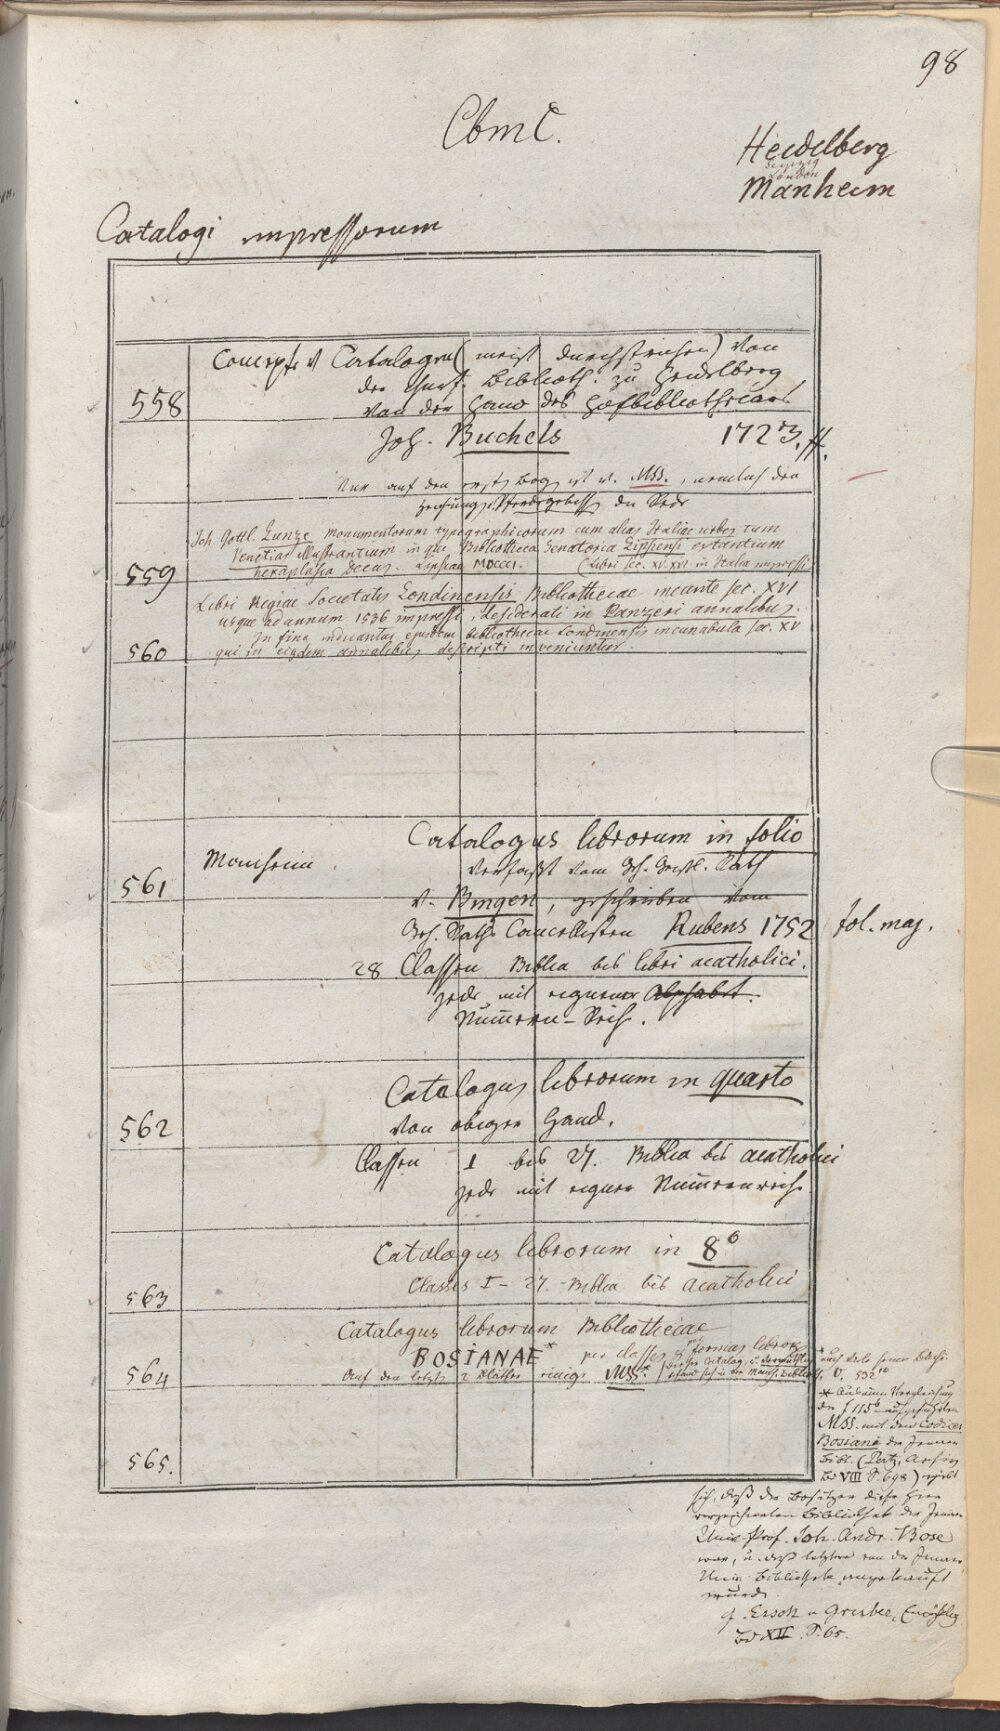 98
Cbm C.
Heidelberg
Leipzig
London
Manheim
Catalogi impressorum
558
Concepte v Catalogen (meist durchstrichen) von
der Churf. Biblioth. zu Heidelberg
von der Hand des Hofbibliothecars
Joh. Buchels 1723. ff.
Nur auf den erst. Bog. ist v. MSS., nemlich den
der Rede
559
Joh. Gottl. Lunze monumentorum typographicorum cum alias Italiae urbes tum
Venetias illustrantium in que Bibliotheca Senatoria Lipsiensi extantium
hexaplasia Decas. Lipsiae MDCCCI. (Libri sec. XV. XVI in Italia impressi
560
Libri Regiae Societatis Londinensis Bibliothecae ineunte sec. XVI
usque ad annum 1536 impressi, desiderati in Panzeri annalibus.
In fine indicantur ejusdem bibliothecae Londinensis incunabula sec. XV
qui in eisdem annalibus descripti inveniuntur.
561
Manheim.
Catalogus librorum in folio
verfaßt vom Geh. Geistl. Rath
v. Bingen, geschrieben vom
Geh. Raths Cancellisten Rubens 1752 fol. maj.
28 Classen Biblia bis libri acatholici.
jede mit eigener Alphabet.
Num̄ern-Reihe.
562
Catalogus librorum in quarto
von obiger Hand.
Classen I bis 27. Biblia bis acatholici
jede mit eigner Num̄ernreihe
563
Catalogus librorum in 8°
Classes I - 27. Biblia bis Acatholici
564
Catalogus librorum Bibliothecae
BOSIANAE* per classes & formas librorum
Dieser Catalog, u.
auf den letzt. 2 Blätter einige MSS.*
* Aus einer Vergleichung
der f 115b aufgeführten
MSS. mit den Codices
Bosiani der Jenaer
Bibl. (Pertz, Archiv
Bd VIII S. 698) ergibt
565.
sich, daß der Besitzer dieser hier
verzeichneten Bibliothek der Jenaer
Univ. Prof. Joh. Andr. Bose
war, u. daß letztere von der Jenaer
Univ. Bibliothek angekauft
wurde
cf. Ersch u Gruber, Encyklop.
Bd XII. S. 65.